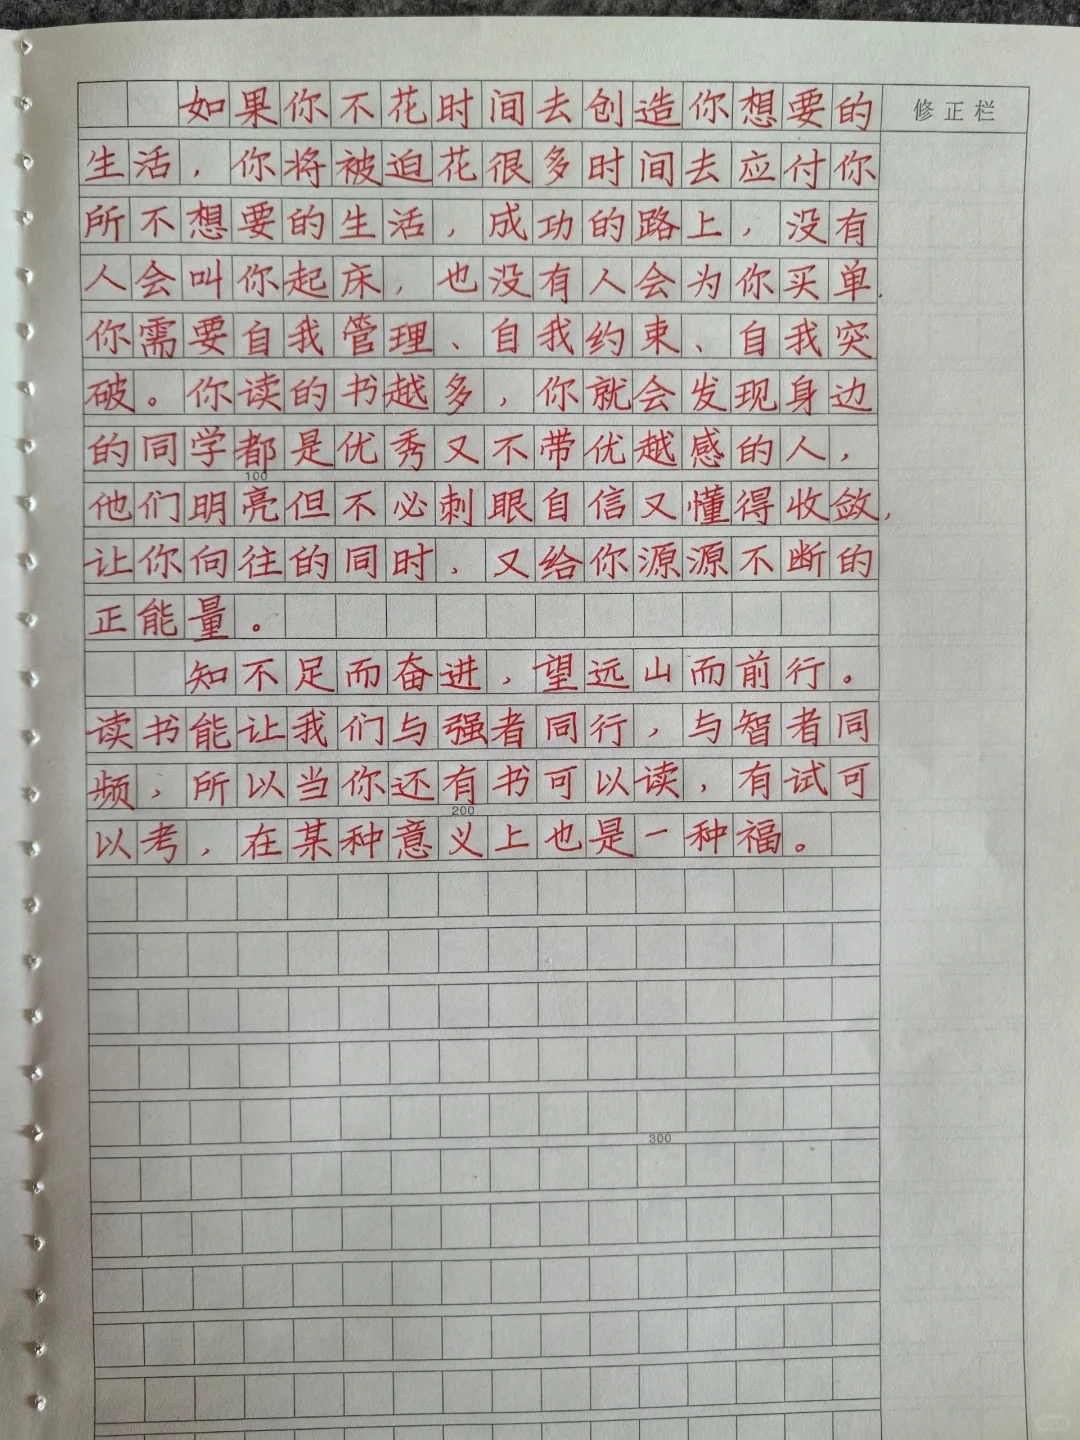 如果你不花时间去创造你想要的
修正栏
生活，你将被迫花很多时间去应付你
所不想要的生活，成功的路上，没有
人会叫你起床，也没有人会为你买单.
你需要自我管理、自我约束、自我突
破。你读的书越多，你就会发现身边
的同学都是优秀又不带优越感的人，
100
他们明亮但不必刺眼自信又懂得收敛，
让你向往的同时，又给你源源不断的
正能量。
知不足而奋进，望远山而前行。
读书能让我们与强者同行，与智者同
频，所以当你还有书可以读，有试可
200
以考，在某种意义上也是一种福。
300